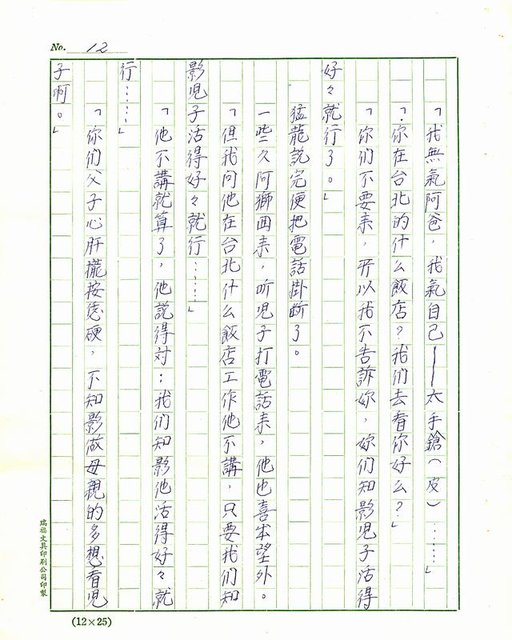 No. 12
「我無氣阿爸，我氣自己——太手鎗（皮）……」
「你在台北的什么飯店？我们去看你好么？」
「你们不要来，所以我不告訴妳，妳们知影児子活得
好々就行了。」
猛龍説完便把電話掛断了。
一些久阿獅回来，听児子打電話来，他也喜出望外。
「但我问他在台北什么飯店工作他不講，只要我们知
影児子活得好々就行……」
「他不講就算了，他說得对：我们知影他活得好々就
行……」
「你们父子心肝攏按怎硬，不知影做母親的多想看児
子啊。」
瑞祺文具印刷公司印製
(12×25)